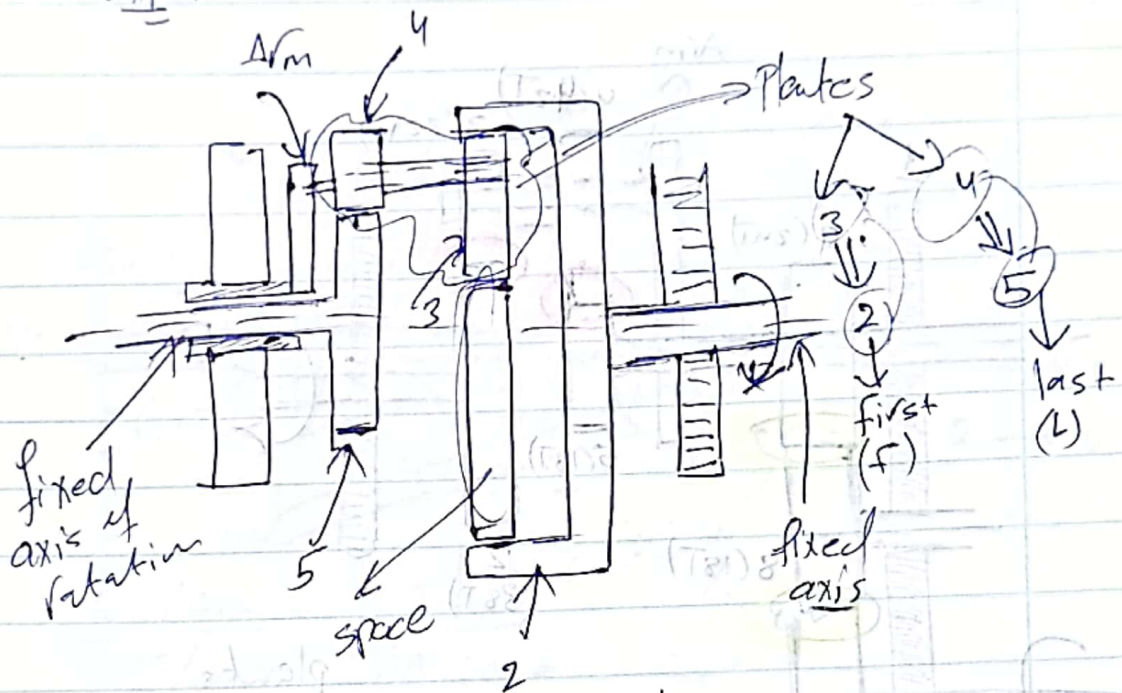 Arm
4
Plantes
3
4
2
5
first
(f)
last
(L)
3
fixed
axis of
rotation
5
space
2
fixed
axis